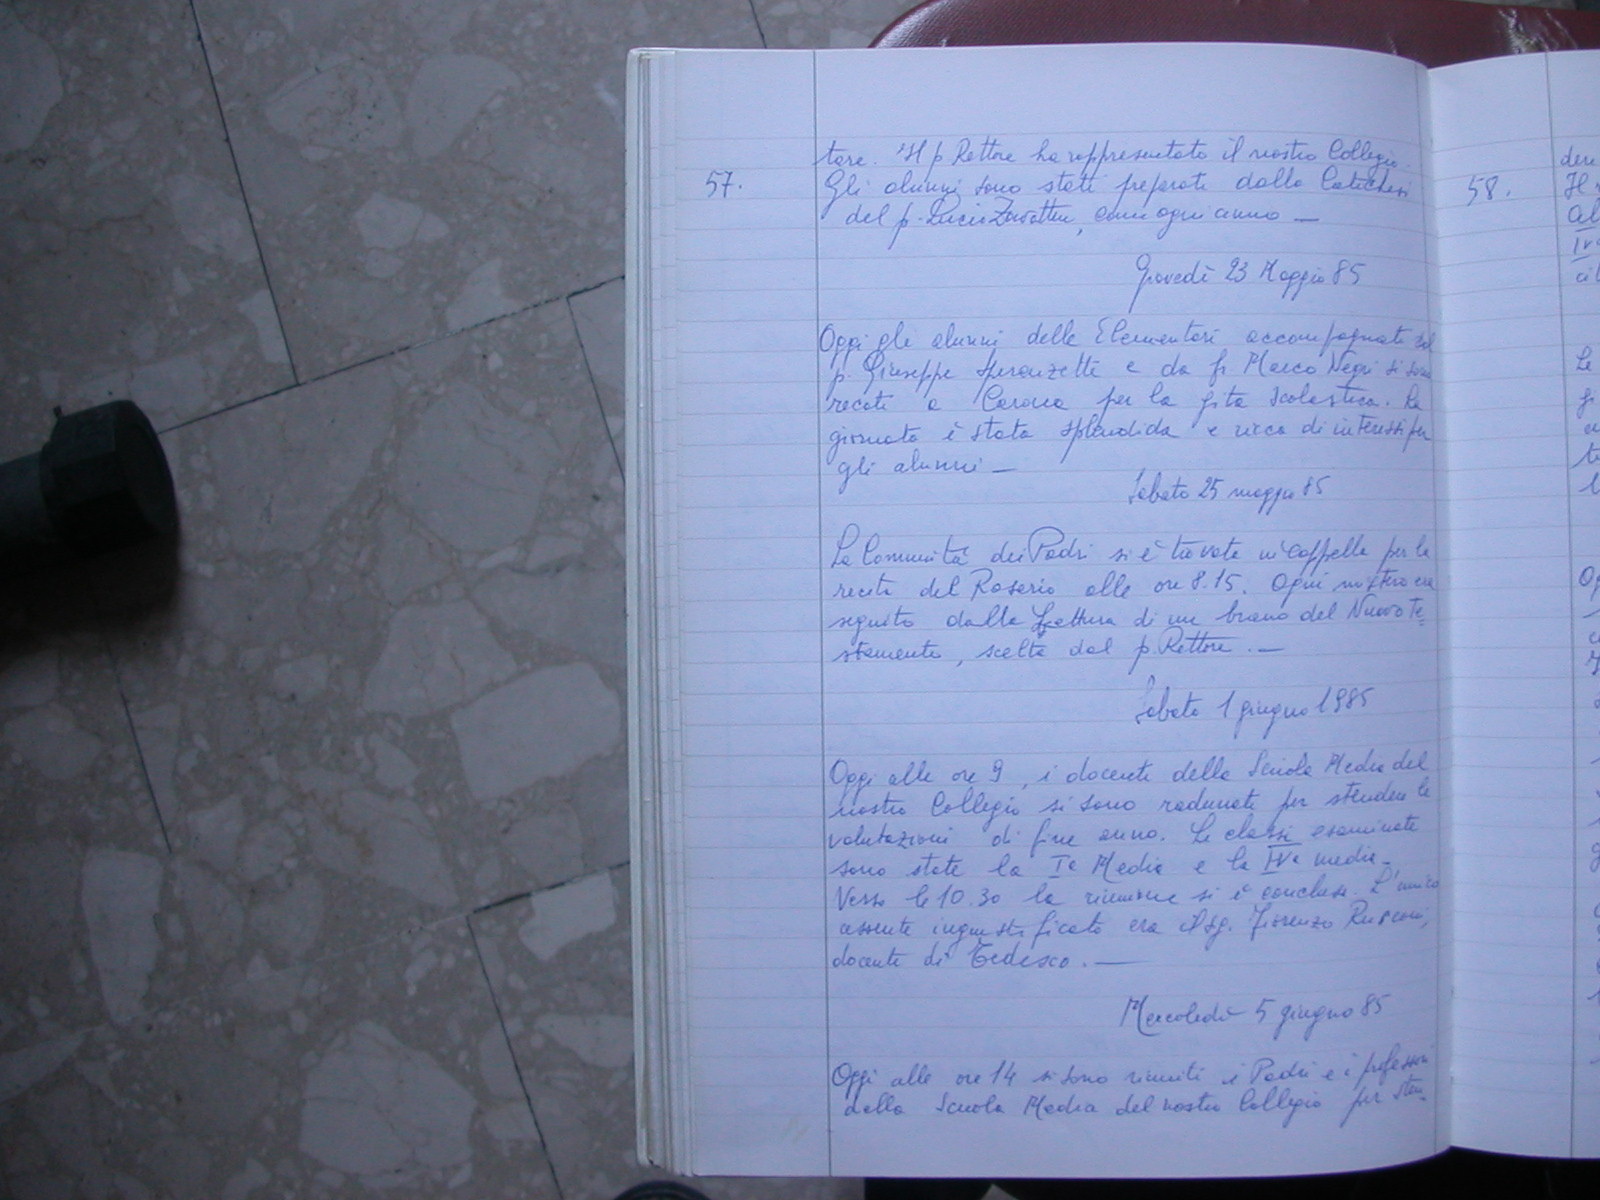 tore. Il p. Rettore ha rappresentato il nostro Collegio.
57.
Gli alunni sono stati preparati dalla Catechesi
del p. Lucio Zavattin, come ogni anno —
Giovedì 23 Maggio 85
Oggi gli alunni delle Elementari accompagnati dal
p. Giuseppe Speranzetti e da fr Marco Negri si sono
recati a Carona per la gita scolastica. La
giornata è stata splendida e ricca di interessi per
gli alunni —
Sabato 25 maggio 85
La Comunità dei Padri si è trovata in Cappella per la
recita del Rosario alle ore 8.15. Ogni mistero era
seguito dalla Lettura di un brano del Nuovo Te=
stamento, scelto dal p. Rettore. —
Sabato 1 giugno 1985
Oggi alle ore 9, i docenti della Scuola Media del
nostro Collegio si sono radunati per stendere le
valutazioni di fine anno. Le classi esaminate
sono state la Iª Media e la IVª media.
Verso le 10.30 la riunione si è conclusa. L'unico
assente ingiustificato era il sg. Fiorenzo Rusconi,
docente di Tedesco. —
Mercoledì 5 giugno 85
Oggi alle ore 14 si sono riuniti i Padri e i professori
della Scuola Media del nostro Collegio per sten=
58.